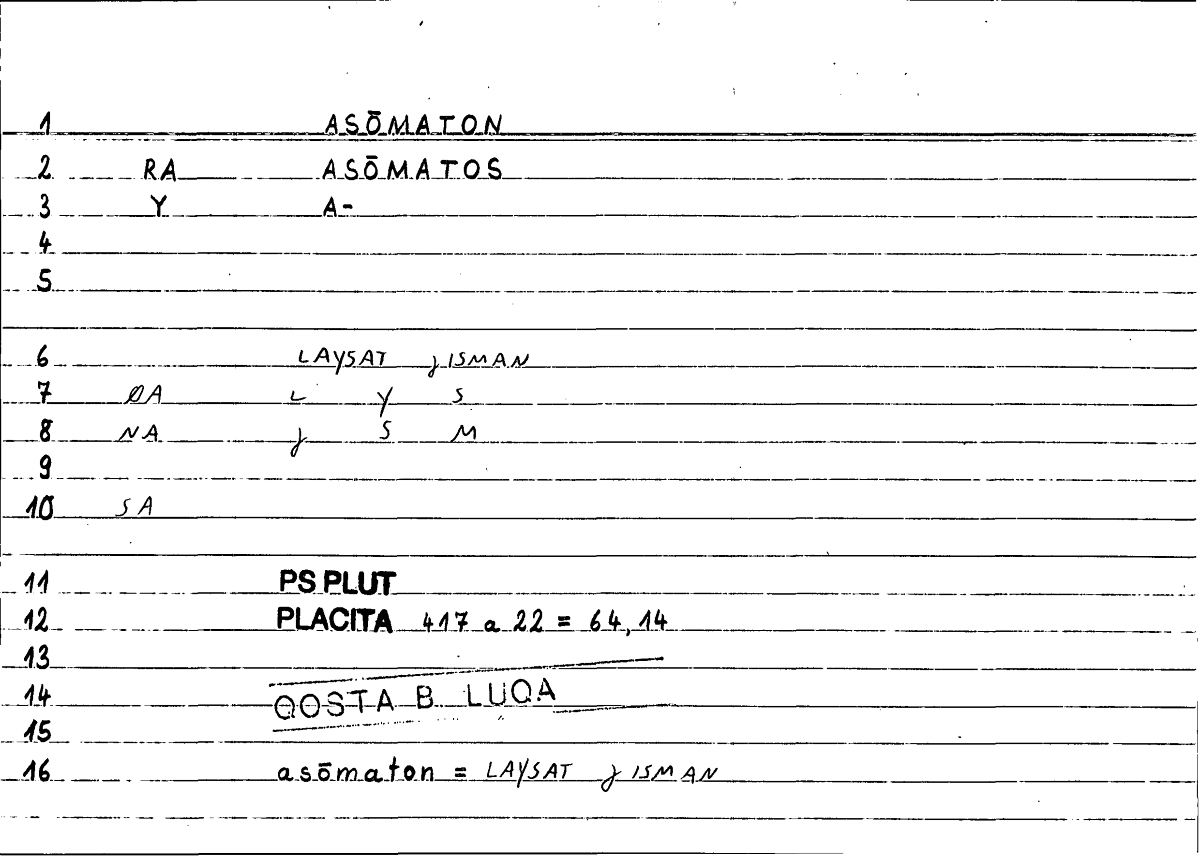 1 ASŌMATON
2 RA ASŌMATOS
3 Y A-
4
5
6 LAYSAT JISMAN
7 ØA L Y S
8 NA J S M
9
10 SA
11 PS PLUT
12 PLACITA 417 a 22 = 64,14
13
14 QOSTA B LUQA
15
16 asōmaton = LAYSAT JISMAN